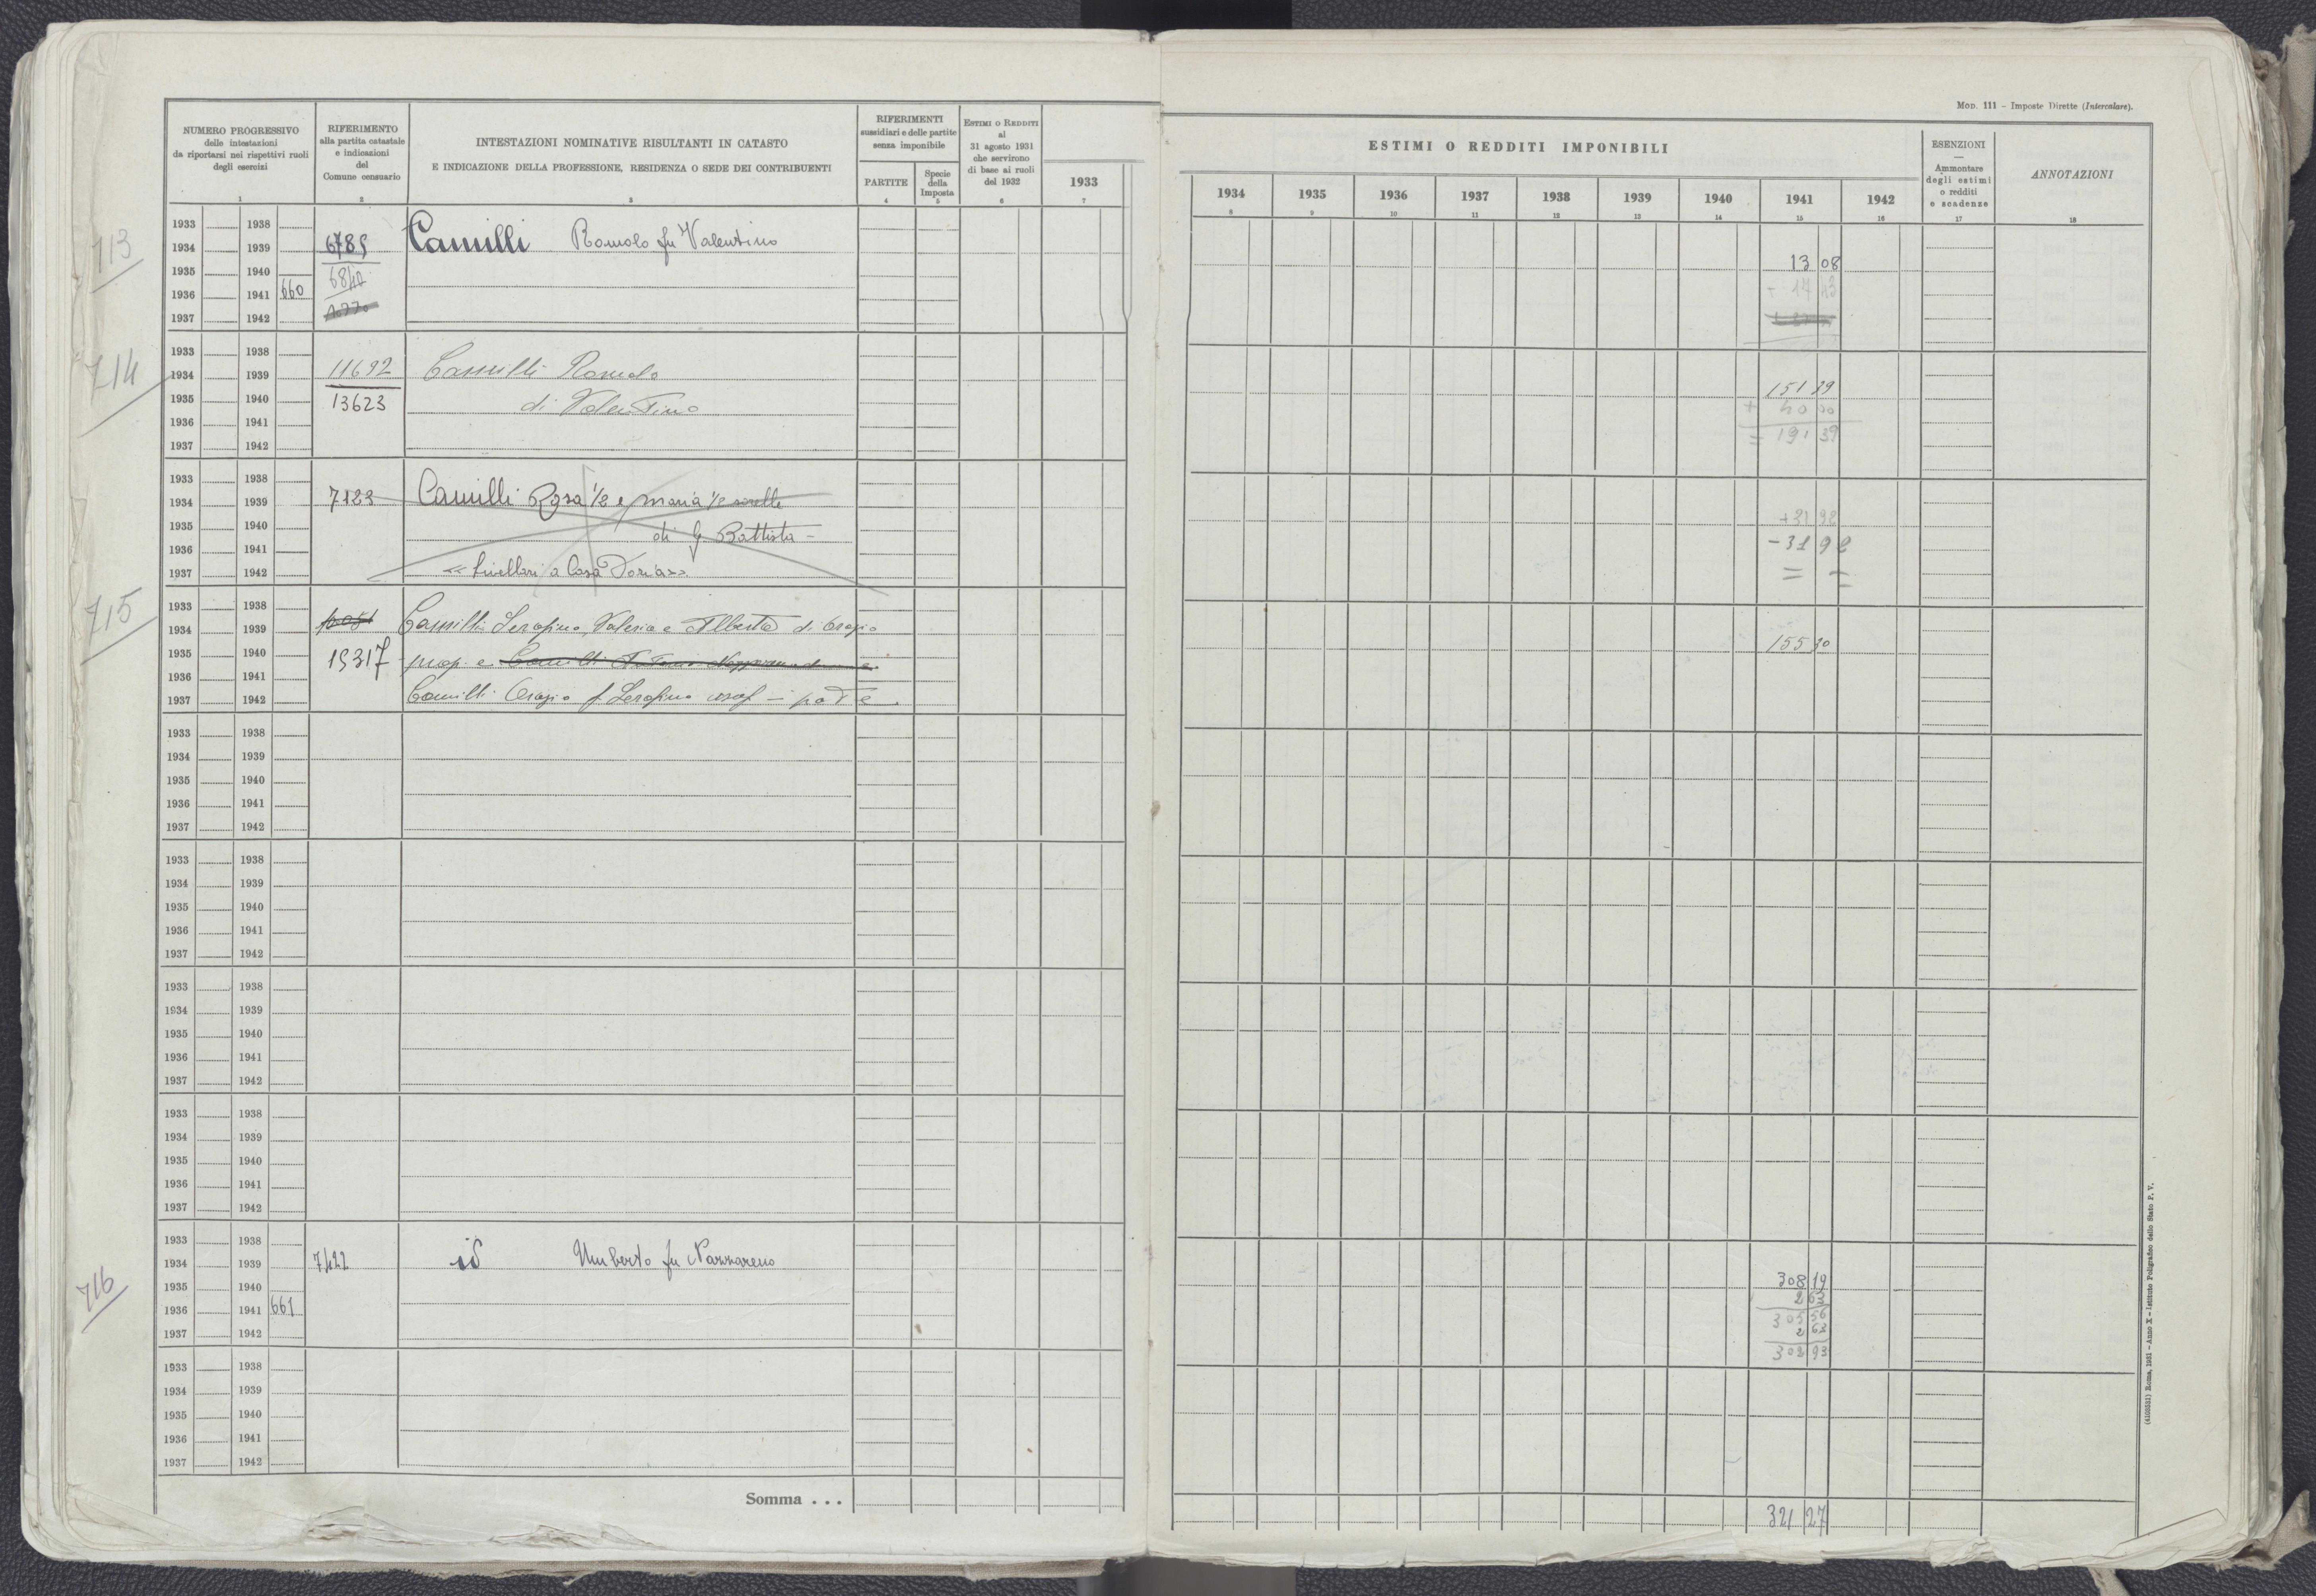 MOD. 111 – Imposte Dirette (Intercalare).
NUMERO PROGRESSIVO
delle intestazioni
da riportarsi nei rispettivi ruoli
degli esercizi
1
RIFERIMENTO
alla partita catastale
e indicazioni
del
Comune censuario
2
INTESTAZIONI NOMINATIVE RISULTANTI IN CATASTO
E INDICAZIONE DELLA PROFESSIONE, RESIDENZA O SEDE DEI CONTRIBUENTI
3
RIFERIMENTI
sussidiari e delle partite
senza imponibile
PARTITE
4
Specie
della
Imposta
5
ESTIMI O REDDITI
al
31 agosto 1931
che servirono
di base ai ruoli
del 1932
6
1933
7
ESTIMI O REDDITI IMPONIBILI
1934 1935 1936 1937 1938 1939 1940 1941 1942
8 9 10 11 12 13 14 15 16
ESENZIONI
—
Ammontare
degli estimi
o redditi
e scadenze
17
ANNOTAZIONI
18
713
1933 1938
1934 1939 6785 Camilli Romolo fu Valentino
1935 1940 13 08
1936 1941 660
1937 1942
714
1933 1938
1934 1939 11692 Camilli Romolo
1935 1940 13623 di Valentino 151 39
1936 1941 + 40 00
1937 1942 = 191 39
1933 1938
1934 1939 7123 Camilli Rosa 1/2 e Maria 1/2 sorelle
1935 1940 di G. Battista – +31 92
1936 1941 –31 92
1937 1942 « livellari a Casa Doria» = =
715
1933 1938
1934 1939 Camilli Serafino, Valeria e Alberta di Orazio
1935 1940 19317 prop. e 155 30
1936 1941
1937 1942 Camilli Orazio f Serafino usuf –
1933 1938
1934 1939
1935 1940
1936 1941
1937 1942
1933 1938
1934 1939
1935 1940
1936 1941
1937 1942
1933 1938
1934 1939
1935 1940
1936 1941
1937 1942
1933 1938
1934 1939
1935 1940
1936 1941
1937 1942
716
1933 1938
1934 1939 7422 id Umberto fu Nazzareno
1935 1940 308 19
1936 1941 661 2 63
305 56
1937 1942 2 63
302 93
1933 1938
1934 1939
1935 1940
1936 1941
1937 1942
Somma . . . 321 27
(4103521) Roma, 1931 – Anno X – Istituto Poligrafico dello Stato P. V.